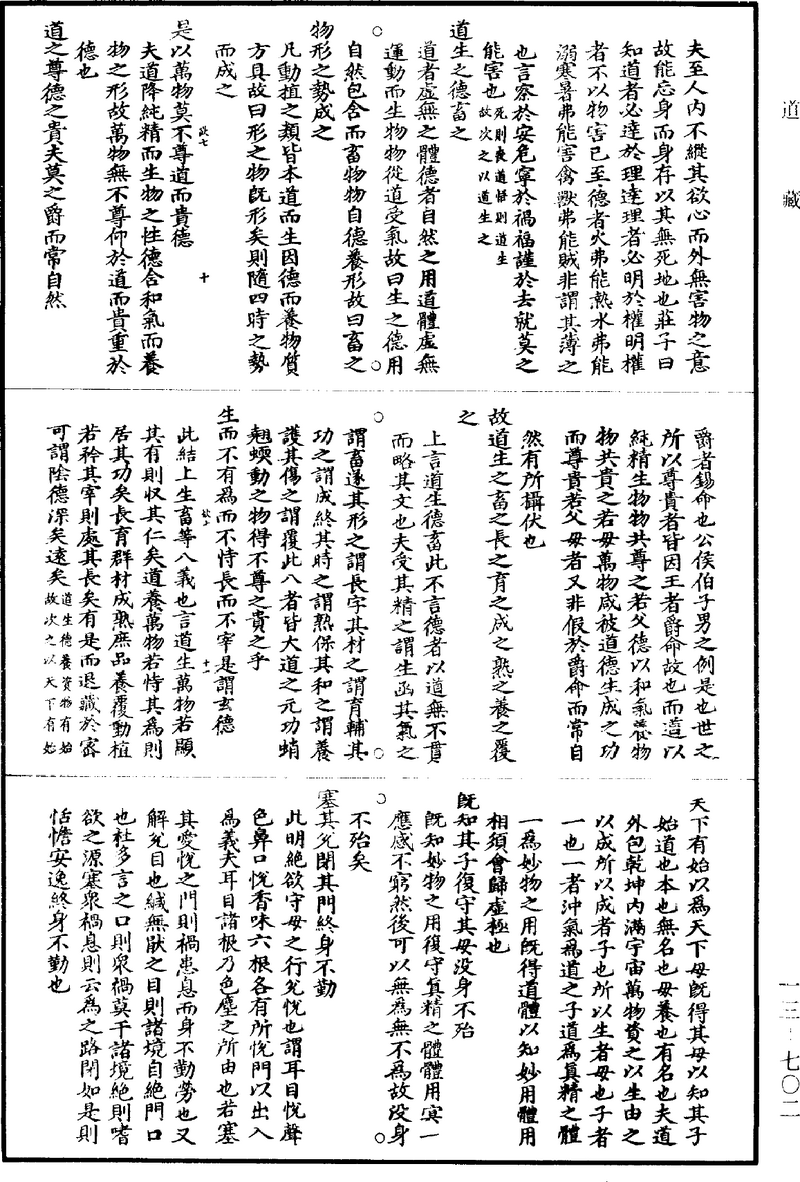 道藏
夫至人內不縱其欲心而外無害物之意
故能忘身而身存以其無死地也莊子曰
知道者必達於理達理者必明於權明權
者不以物害己至德者火弗能熱水弗能
溺寒暑弗能害禽獸弗能賊非謂其薄之
也言察於安危寧於禍福謹於去就莫之
能害也死則喪道悟則道生故次之以道生之
道生之德畜之
道者虛無之體德者自然之用道體虛無
運動而生物物從道受氣故曰生之德用
自然包含而畜物物自德養形故曰畜之
物形之勢成之
凡動植之類皆本道而生因德而養物質
方具故曰形之物既形矣則隨四時之勢
而成之
是以萬物莫不尊道而貴德
夫道降純精而生物之性德含和氣而養
物之形故萬物無不尊仰於道而貴重於
德也
道之尊德之貴夫莫之爵而常自然
爵者錫命也公侯伯子男之例是也世之
所以尊貴者皆因王者爵命故也而道以
純精生物物共尊之若父德以和氣養物
物共貴之若母萬物咸被道德生成之功
而尊貴若父母者又非假於爵命而常自
然有所攝伏也
故道生之畜之長之育之成之熟之養之覆
之
上言道生德畜此不言德者以道無不貫
而略其文也夫受其精之謂生函其氣之
謂畜遂其形之謂長字其材之謂育輔其
功之謂成終其時之謂熟保其和之謂養
護其傷之謂覆此八者皆大道之元功蛸
翹蝡動之物得不尊之貴之乎
生而不有為而不恃長而不宰是謂玄德
此結上生畜等八義也言道生萬物若顯
其有則収其仁矣道養萬物若恃其為則
居其功矣長育群材成熟庶品養覆動植
若矜其宰則處其長矣有是而退藏於密
可謂陰德深矣遠矣道生德養資物有始故次之以天下有始
天下有始以為天下母既得其母以知其子
始道也本也無名也母養也有名也夫道
外包乾坤內滿宇宙萬物資之以生由之
以成所以成者子也所以生者母也子者
一也一者沖氣為道之子道為真精之體
一為妙物之用既得道體以知妙用體用
相須會歸虛極也
既知其子復守其母没身不殆
既知妙物之用復守真精之體體用冥一
應感不窮然後可以無為無不為故没身
不殆矣
塞其兊閉其門終身不勤
此明絕欲守母之行兊悅也謂耳目悅聲
色鼻口悅香味六根各有所悅門以出入
為義夫耳目諸根乃色塵之所由也若塞
其愛悅之門則禍患息而身不勤勞也又
解兊目也緘無厭之目則諸境自絕門口
也杜多言之口則衆禍莫干諸境絕則嗜
欲之源塞衆禍息則云為之路閉如是則
恬憺安逸終身不勤也
一三－七〇二